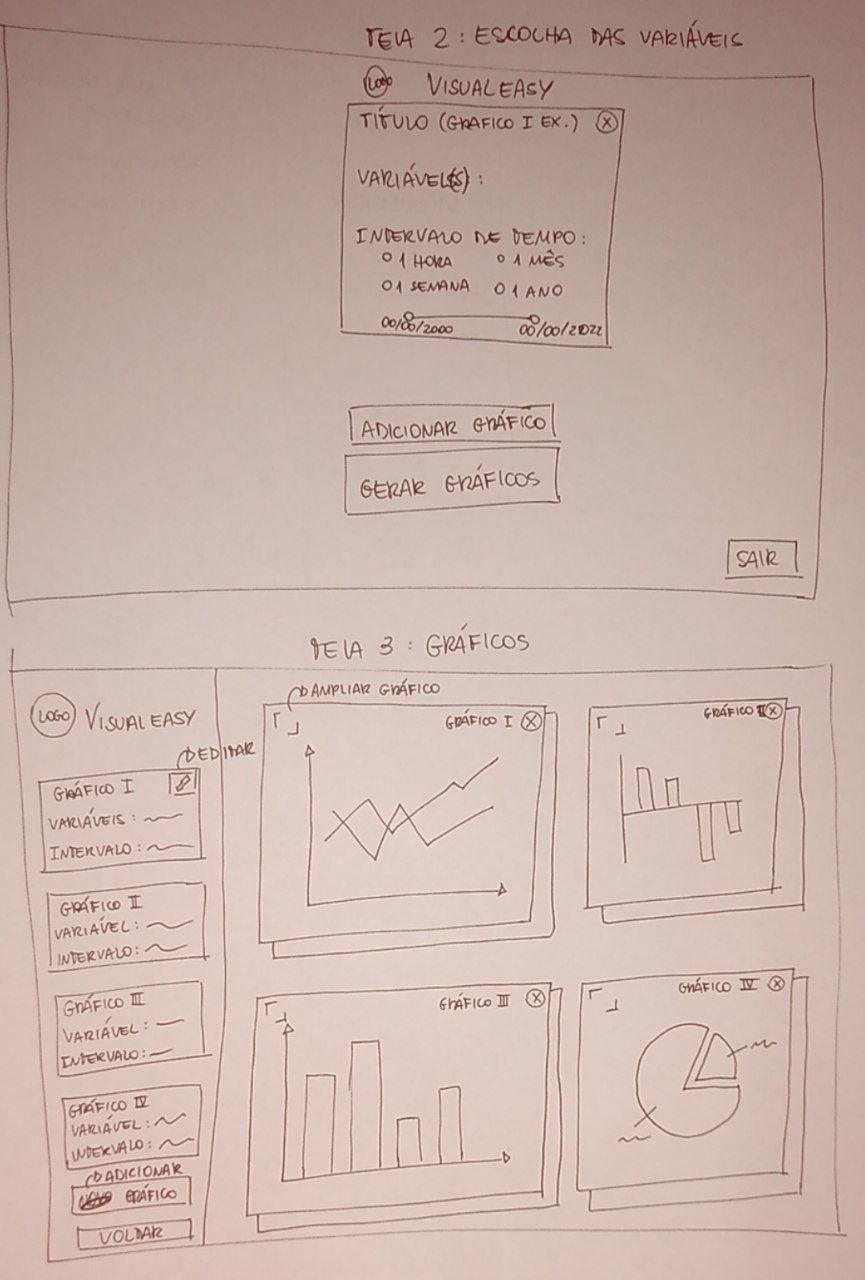 TELA 2 : ESCOLHA DAS VARIÁVEIS
LOGO VISUALEASY
TÍTULO (GRÁFICO I EX.) X
VARIÁVEL(S) :
INTERVALO DE TEMPO :
O 1 HORA O 1 MÊS
O 1 SEMANA O 1 ANO
00/00/2000 00/00/2022
ADICIONAR GRÁFICO
GERAR GRÁFICOS
SAIR
TELA 3 : GRÁFICOS
LOGO VISUALEASY
EDITAR
GRÁFICO I
VARIÁVEIS :
INTERVALO :
GRÁFICO II
VARIÁVEL :
INTERVALO :
GRÁFICO III
VARIÁVEL :
INTERVALO :
GRÁFICO IV
VARIÁVEL :
INTERVALO :
ADICIONAR
GRÁFICO
VOLTAR
AMPLIAR GRÁFICO
GRÁFICO I X
GRÁFICO II X
GRÁFICO III X
GRÁFICO IV X